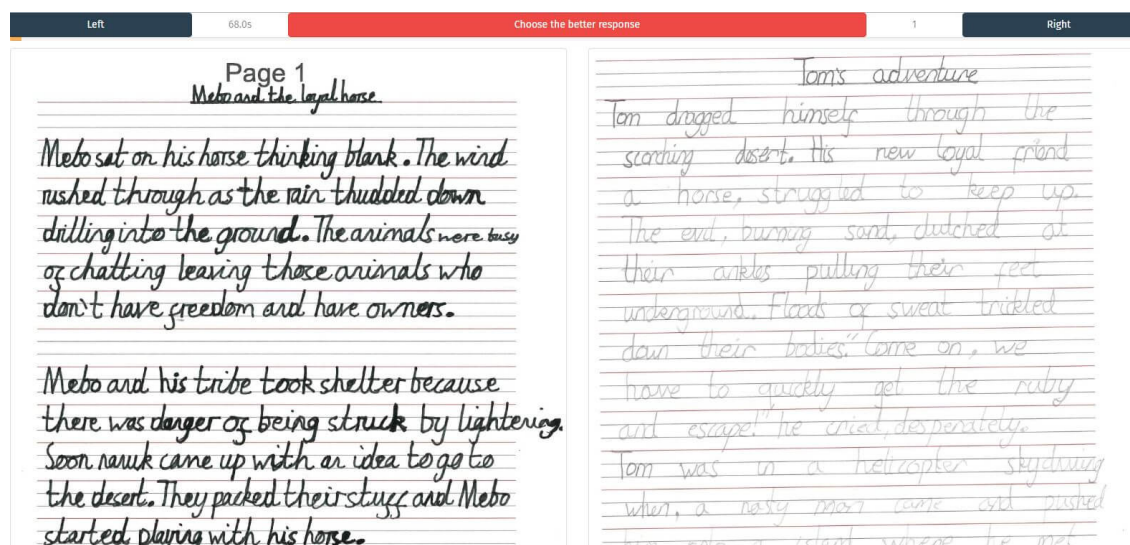 Left 68.0s Choose the better response 1 Right
Page 1
Mebo and the loyal horse
Mebo sat on his horse thinking blank. The wind
rushed through as the rain thudded down
drilling into the ground. The animals were busy
of chatting leaving those animals who
don't have freedom and have owners.
Mebo and his tribe took shelter because
there was danger of being struck by lightering.
Soon nauk came up with an idea to go to
the desert. They packed their stuff and Mebo
started playing with his horse.
Tom's adventure
Tom dragged himself through the
scorching desert. His new loyal friend
a horse, struggled to keep up.
The evil, burning sand, clutched at
their ankles pulling their feet
underground. Floods of sweat trickled
down their bodies. "Come on, we
have to quickly get the ruby
and escape!" he cried, desperately.
Tom was in a helicopter skydiving
when, a nasty man came and pushed
him onto a island where he met